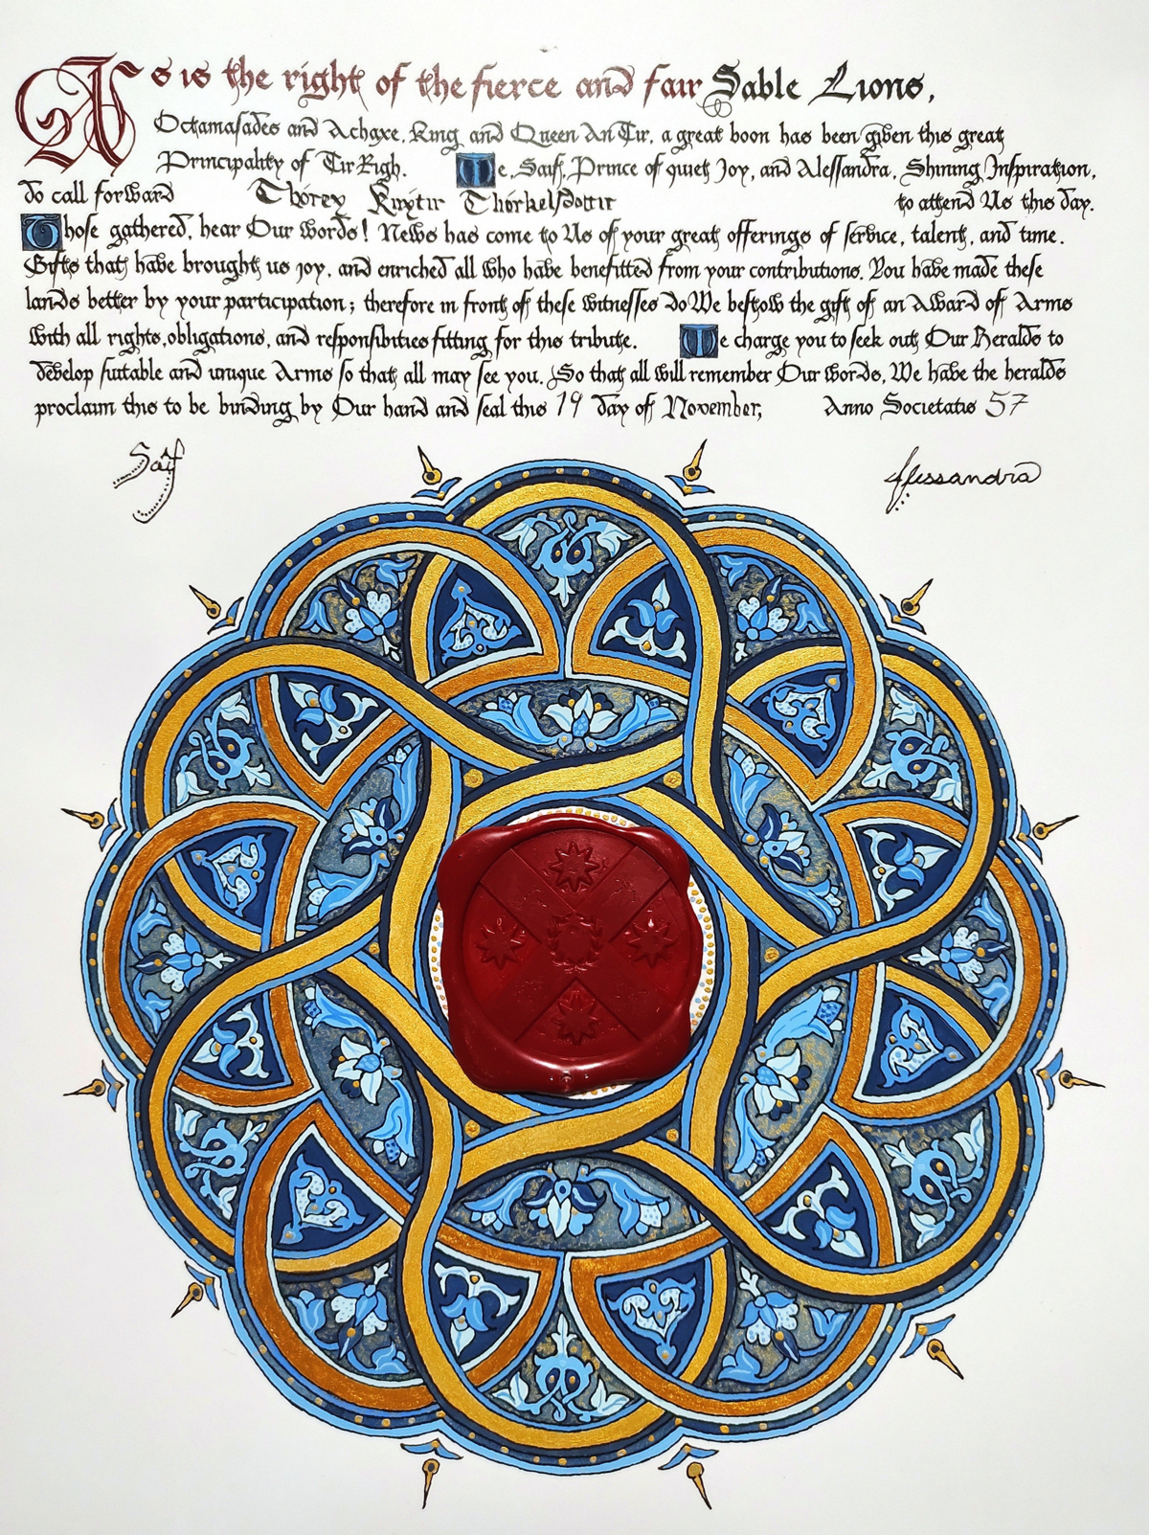 As is the right of the fierce and fair Sable Lions,
Octamasades and Achaxe, King and Queen AnTir, a great boon has been given this great
Principality of Tir Righ. We, Saif, Prince of quiet Joy, and Alessandra, Shining Inspiration,
do call forward Thorey Kuytir Thorkelsdottir to attend Us this day.
Those gathered, hear Our words! News has come to Us of your great offerings of service, talent, and time.
Gifts that have brought us joy, and enriched all who have benefitted from your contributions. You have made these
lands better by your participation; therefore in front of these witnesses do We bestow the gift of an Award of Arms
with all rights, obligations, and responsibities fitting for this tribute. We charge you to seek out Our Heralds to
develop suitable and unique Arms so that all may see you. So that all will remember Our words, We have the heralds
proclaim this to be binding by Our hand and seal this 19 day of November, Anno Societatis 57
Saif Alessandra